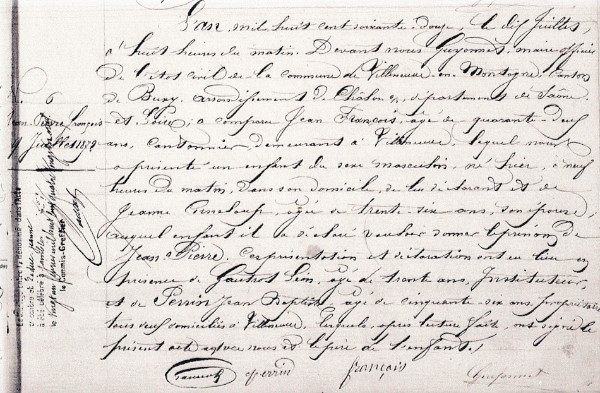 L'an mil huit cent soixante-douze, le dix Juillet,
à huit heures du matin. Devant nous Guyonnet, maire officier
de l'état civil de la commune de Villeneuve-en-Montagne, Canton
de Buxy, arrondissement de Châlon, département de Saône-
et-Loire, a comparu Jean François, âgé de quarante-neuf
ans, Cantonnier, demeurant à Villeneuve, lequel nous
a présenté un enfant du sexe masculin, né hier, à neuf
heures du matin, dans son domicile, de lui déclarant et de
Jeanne âgée de trente-six ans, son épouse,
auquel enfant il a déclaré vouloir donner le prénom de
Jean-Pierre. Ces présentation et déclaration ont eu lieu en
présence de Gautrot Léon, âgé de trente ans, Instituteur,
et de Perrin Jean Baptiste, âgé de cinquante-six ans, propriétaire
tous deux domiciliés à Villeneuve, lesquels, après lecture faite, ont signé le
présent acte avec nous et le père de l'enfant.
Perrin françois Guyonnet
6
Jean Pierre françois
9 Juillet 1872
le Commis-Greffier